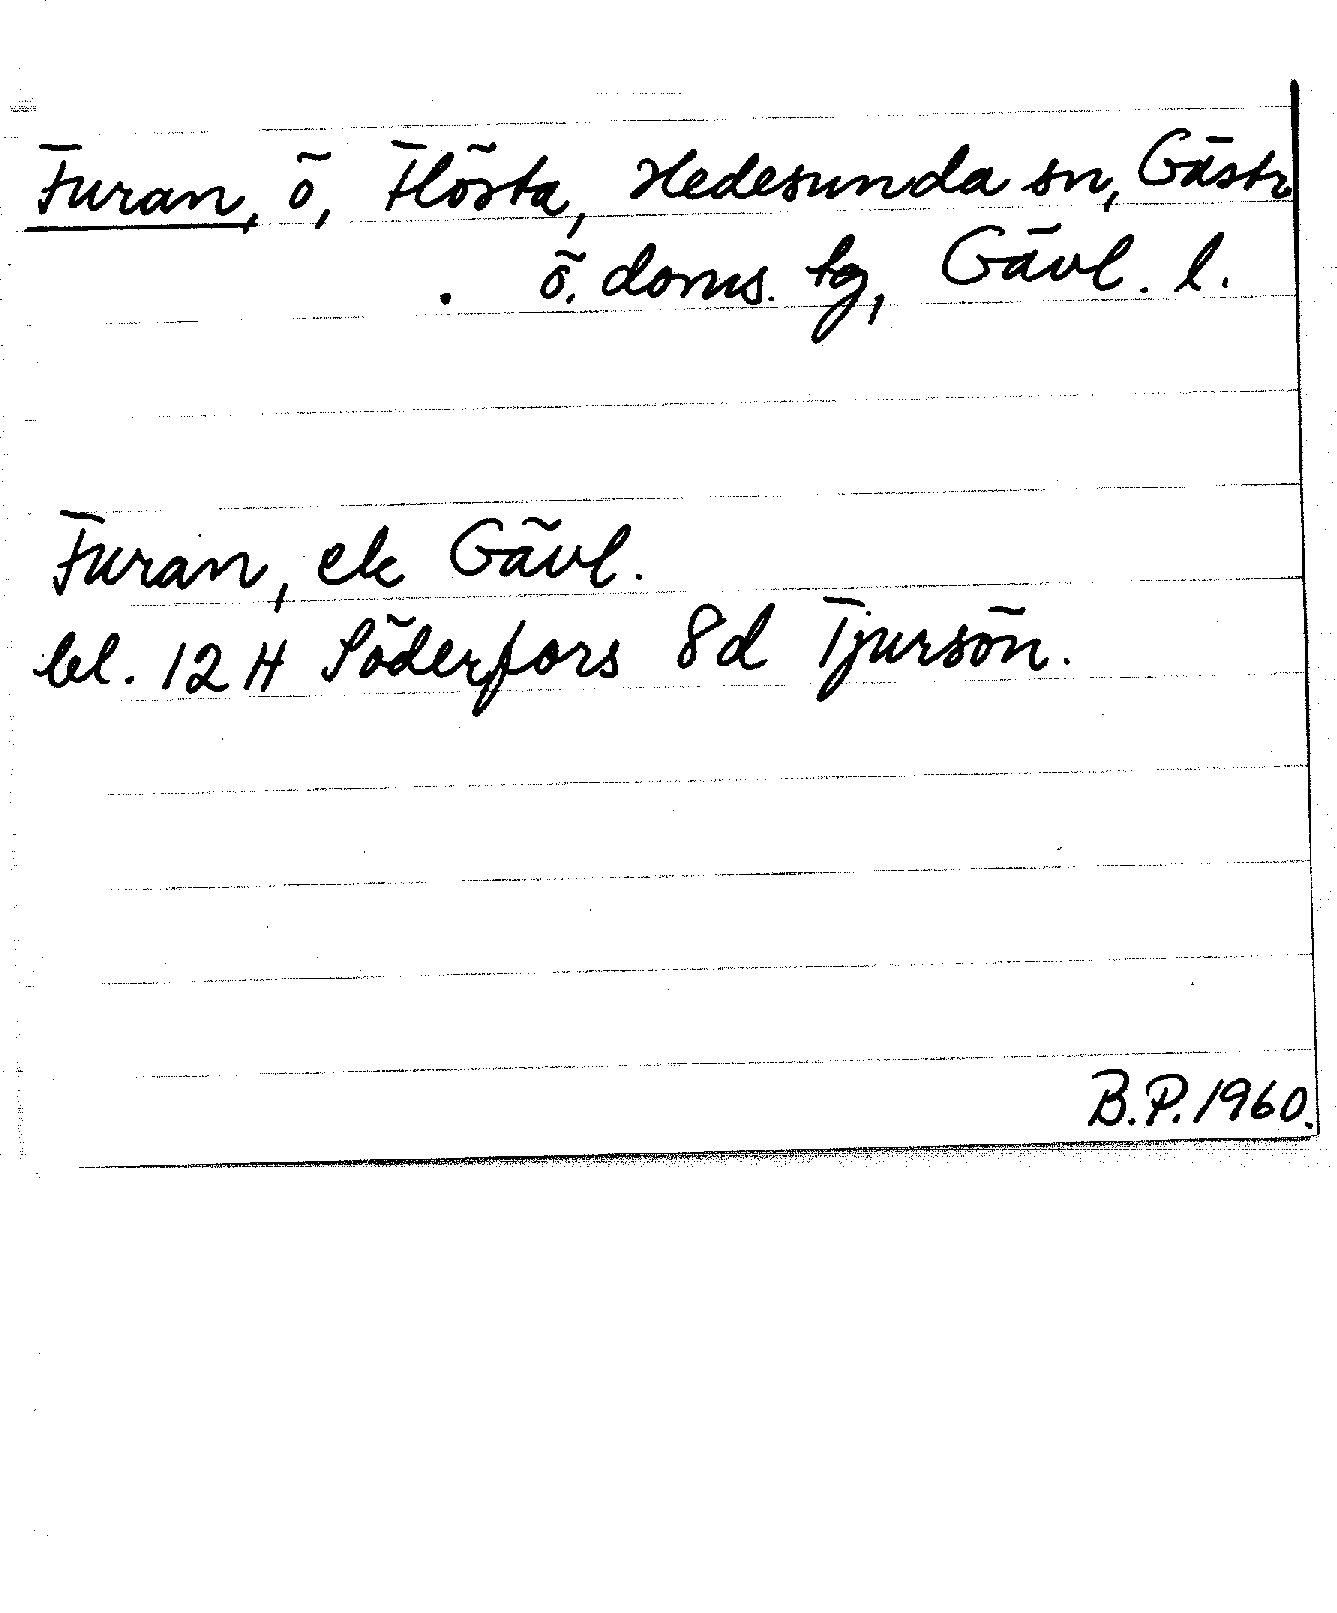 Furan, ö, Flösta, Hedesunda sn, Gästr
. ö. doms. tg, Gävl. l.
Furan, ek Gävl.
bl. 12 H Söderfors 8d Tjursön.
B.P. 1960.